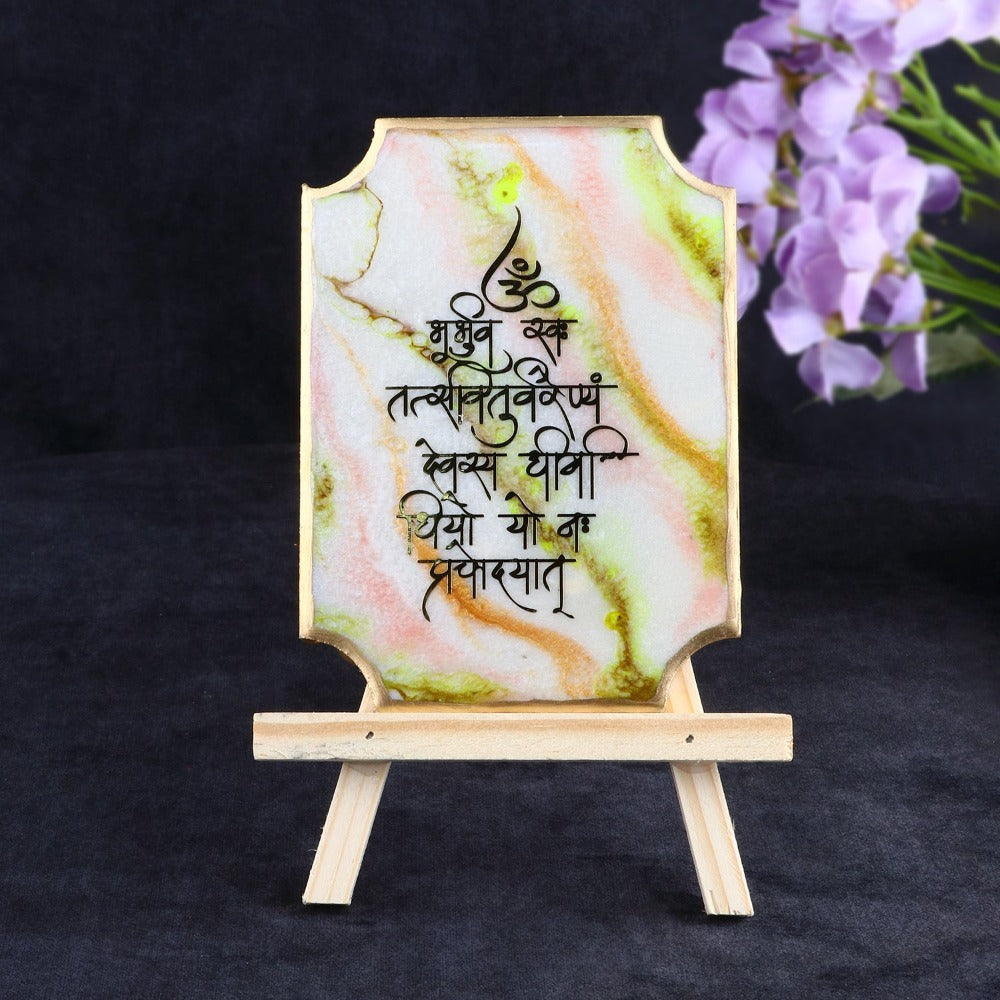 ॐ
भूर्भुव स्वः
तत्सवितुर्वरेण्यं
देवस्य धीमी
धियो यो नः
प्रचोदयात्